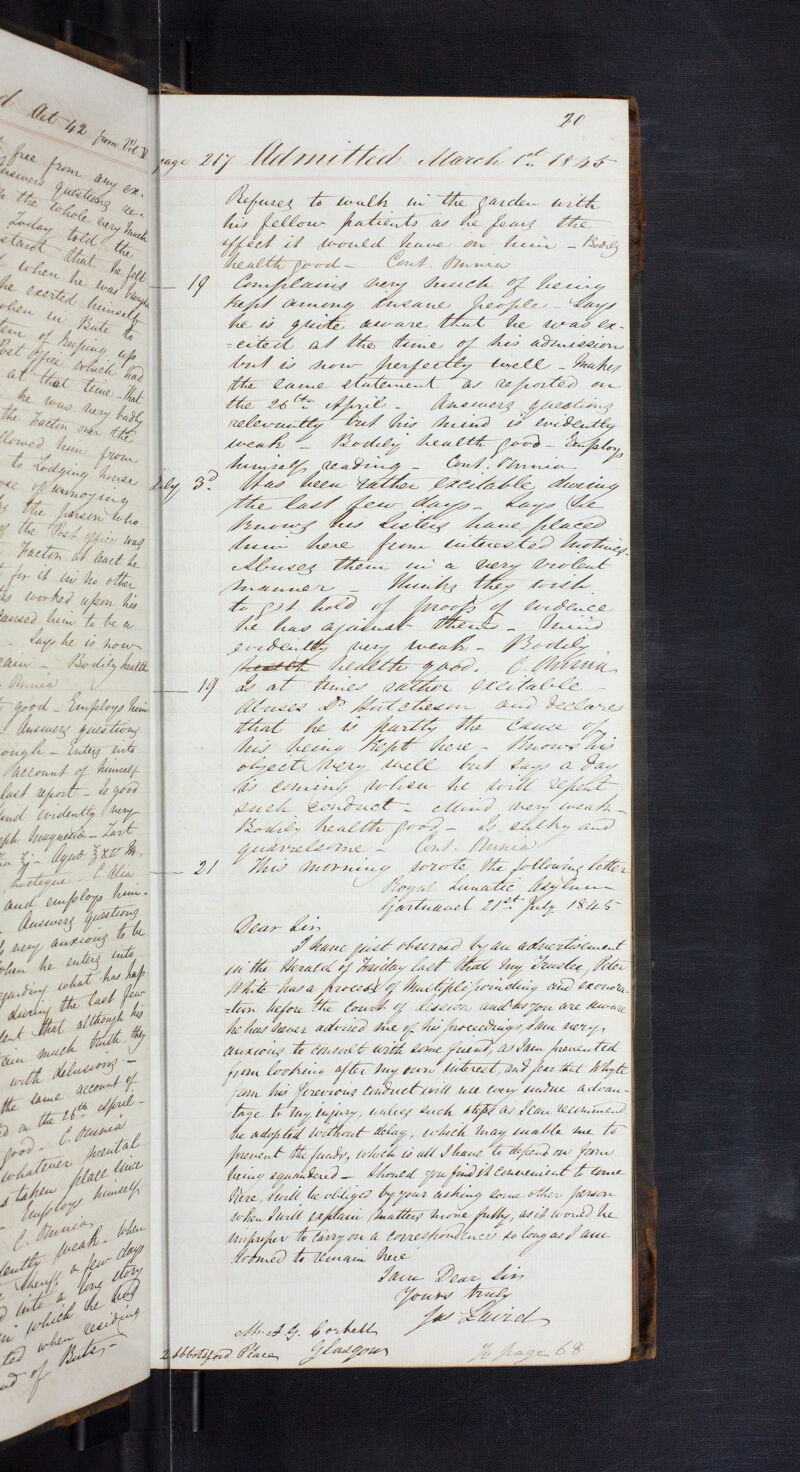 d Act 42 from Vol V
free from any ex-
answers questions re-
the whole very much
Today told the
that he felt
when he was
he exerted himself
when in Bute to
of keeping up
Post Office which had
at that time - that
he was very badly
the Factor over the
allowed him from
to Lodging house
of annoying
the person who
of the Post office was
Factor at least he
for it in no other
has worked upon his
caused him to be a
- Says he is now
- Bodily health
Omnia
good - Employs him-
Answers questions
enough - Enters into
account of himself
last report - Is good
and evidently very
Magnesia - Tart
and employs him-
Answers questions
very anxious to be
when he enters into
regarding what has hap
during the last few
that although his
much truth they
with delusions -
the same account of
on the 26th April -
good - C. Omnia
whatever mental
taken place since
Employs himself
C. Omnia
weak - When
a few days
into a long story
in which he had
when residing
of Bute -
20
page 217 Admitted March 1st 1845
Refuses to walk in the garden with
his fellow patients as he fears the
effect it would have on him - Bodily
health good - Cont. Omnia
- 19 Complains very much of being
kept among insane people - Says
he is quite aware that he was ex-
=cited at the time of his admission
but is now perfectly well - Makes
the same statement as reported on
the 26th April - Answers questions
relevantly but his mind is evidently
weak - Bodily health good - Employs
himself reading - Cont. Omnia
July 3d Has been rather excitable during
the last few days - Says he
knows his Sisters have placed
him here from interested motives -
Abuses them in a very violent
manner - Thinks they wish
to get hold of proofs of evidence
he has against them - Mind
evidently very weak - Bodily
health health good. C. Omnia
- 19 Is at times rather excitable -
Abuses Dr Hutcheson and declares
that he is partly the cause of
his being kept here - Knows his
object very well but says a day
is coming when he will repent
such conduct - Mind very weak -
Bodily health good - Is sulky and
quarrelsome - Cont. Omnia
- 21 This morning wrote the following letter
Royal Lunatic Asylum
Gartnavel 21st July 1845
Dear Sir
I have just observed by an advertisement
in the Herald of Friday last that my Trustee, Peter
White has a process of Multiplepoinding and exonora-
=tion before the Court of Session and as you are aware
he has never advised me of his proceedings I am very
anxious to consult with some friend, as I am prevented
from looking after my own interest, and fear that Whyte
from his previous conduct will use every undue advan-
tage to my injury, unless such steps as I can recommend
be adopted without delay, which may enable me to
prevent the funds, which is all I have to depend on from
being squandered - Should you find it convenient to come
here, I will be obliged by your asking some other person
when I will explain matters more fully, as it would be
improper to carry on a correspondence so long as I am
doomed to remain here
I am Dear Sir
Yours truly
Jas Laird
Mr A. G. Corbett
2 Abbotsford Place Glasgow
To page 68